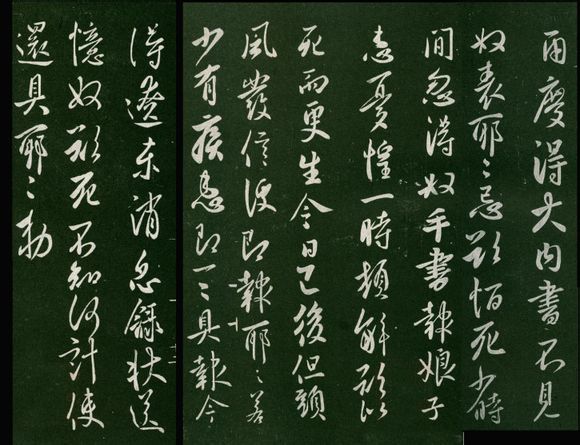 兩度得大內書不見
奴表耶〻忌欲恒死少時
間忽得奴手書報娘子
患憂惶一時頓解欲似
死而更生今日已後但頭
風發信便即報耶〻若
少有疾患即一〻具報今
得遼東消息錄狀送
憶奴欲死不知何計使
還具耶〻勑